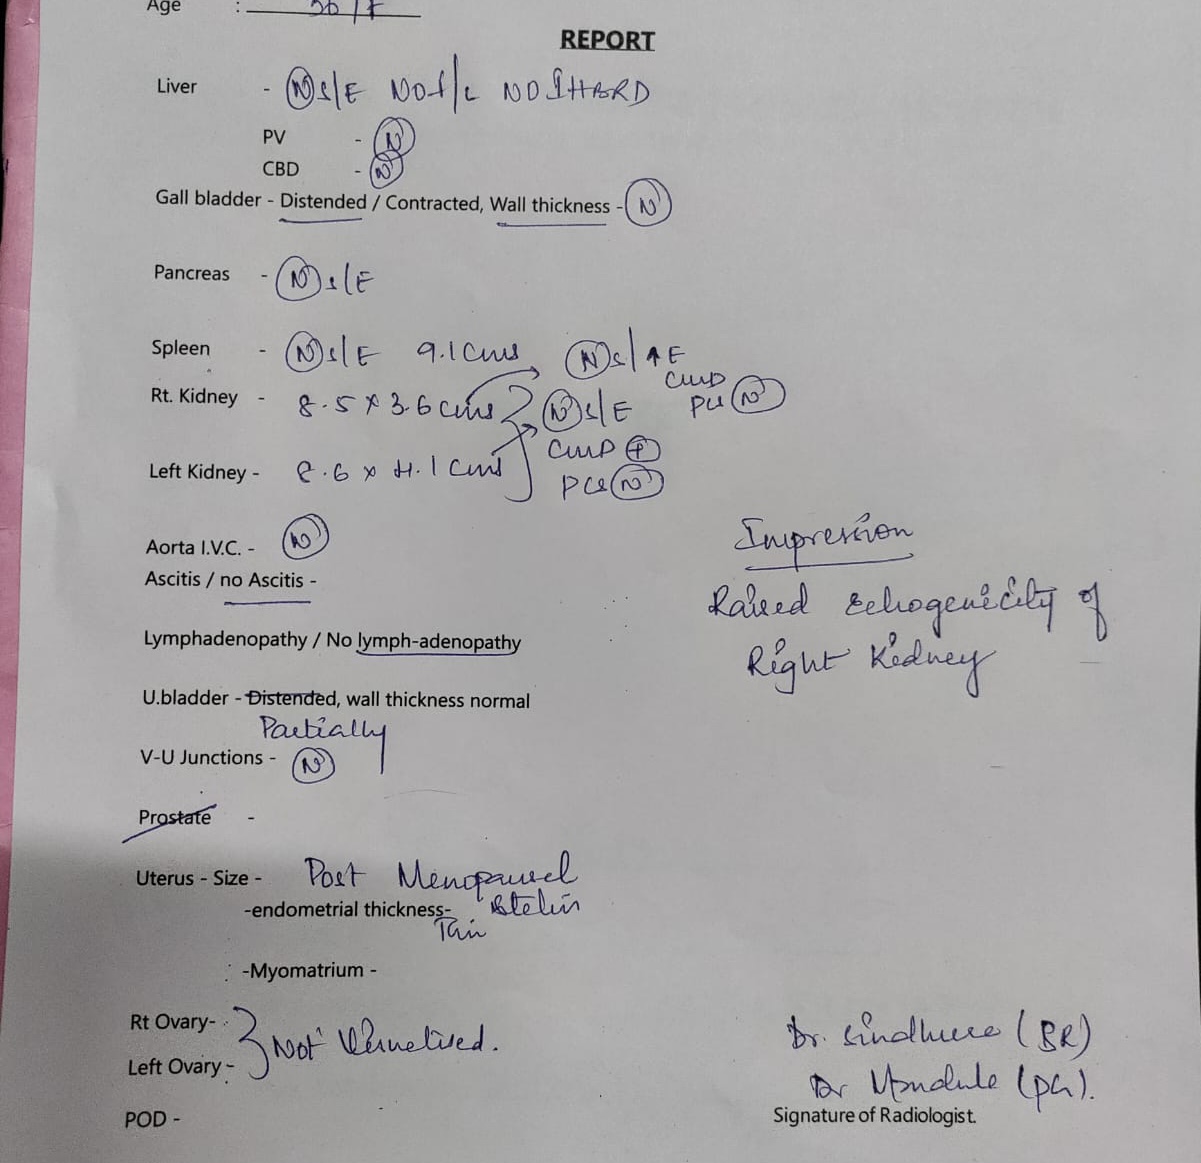 Age :
REPORT
Liver - (N) S/E NO f/L NO IHBRD
PV - (N)
CBD - (N)
Gall bladder - Distended / Contracted, Wall thickness - (N)
Pancreas - (N) S/E
Spleen - (N) S/E 9.1 cms (N) S/↑E
CMD
Rt. Kidney - 8.5 x 3.6 cms (N) S/E PCS (N)
CMD (+)
Left Kidney - 8.6 x 4.1 cms PCS (N)
Aorta I.V.C. - (N)
Impression
Ascitis / no Ascitis -
Raised Echogenicity of
Lymphadenopathy / No lymph-adenopathy
Right Kidney
U.bladder - Distended, wall thickness normal
Partially
V-U Junctions - (N)
Prostate -
Uterus - Size - Post Menopausal
-endometrial thickness- Status
Thin
-Myomatrium -
Rt Ovary-
Not Visualised.
Left Ovary -
Dr. (SR)
Dr (PG).
POD -
Signature of Radiologist.